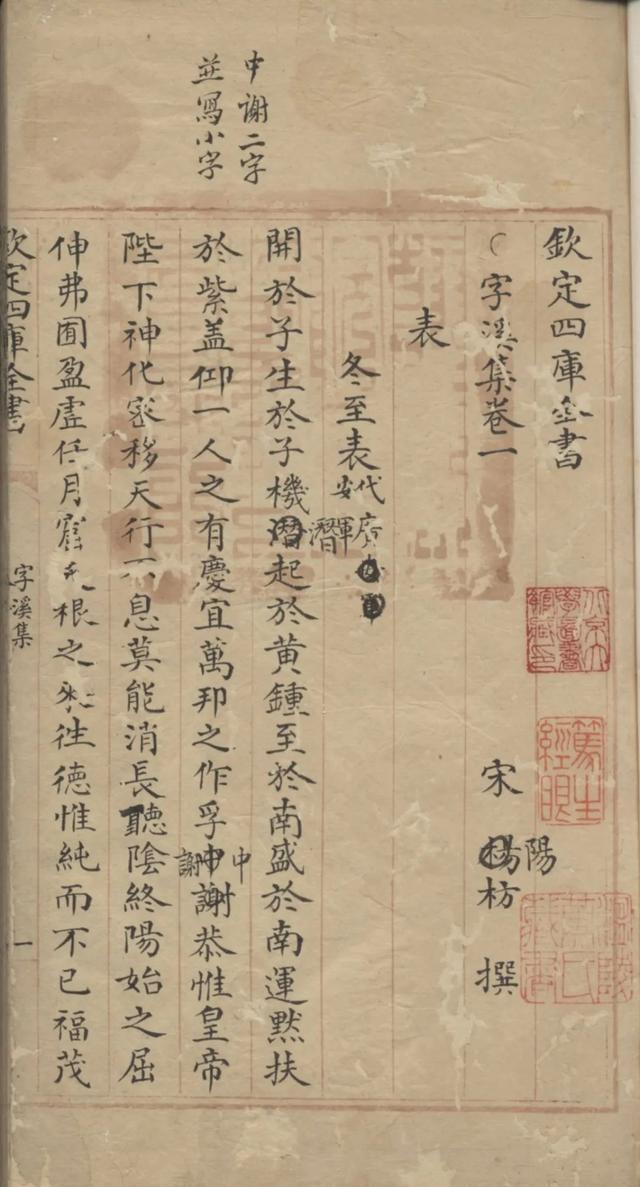 中謝二字
並寫小字
欽定四庫全書
字溪集卷一 宋 陽枋 撰
篤生經眼
表
冬至表 代廣安軍
開於子生於子機潛起於黄鍾至於南盛於南運黙扶
於紫盖仰一人之有慶宜萬邦之作孚中謝恭惟皇帝
陛下神化宻移天行不息莫能消長聽陰終陽始之屈
伸弗囿盈虚任月窟天根之來徃德惟純而不已福茂
欽定四庫全書
字溪集
一